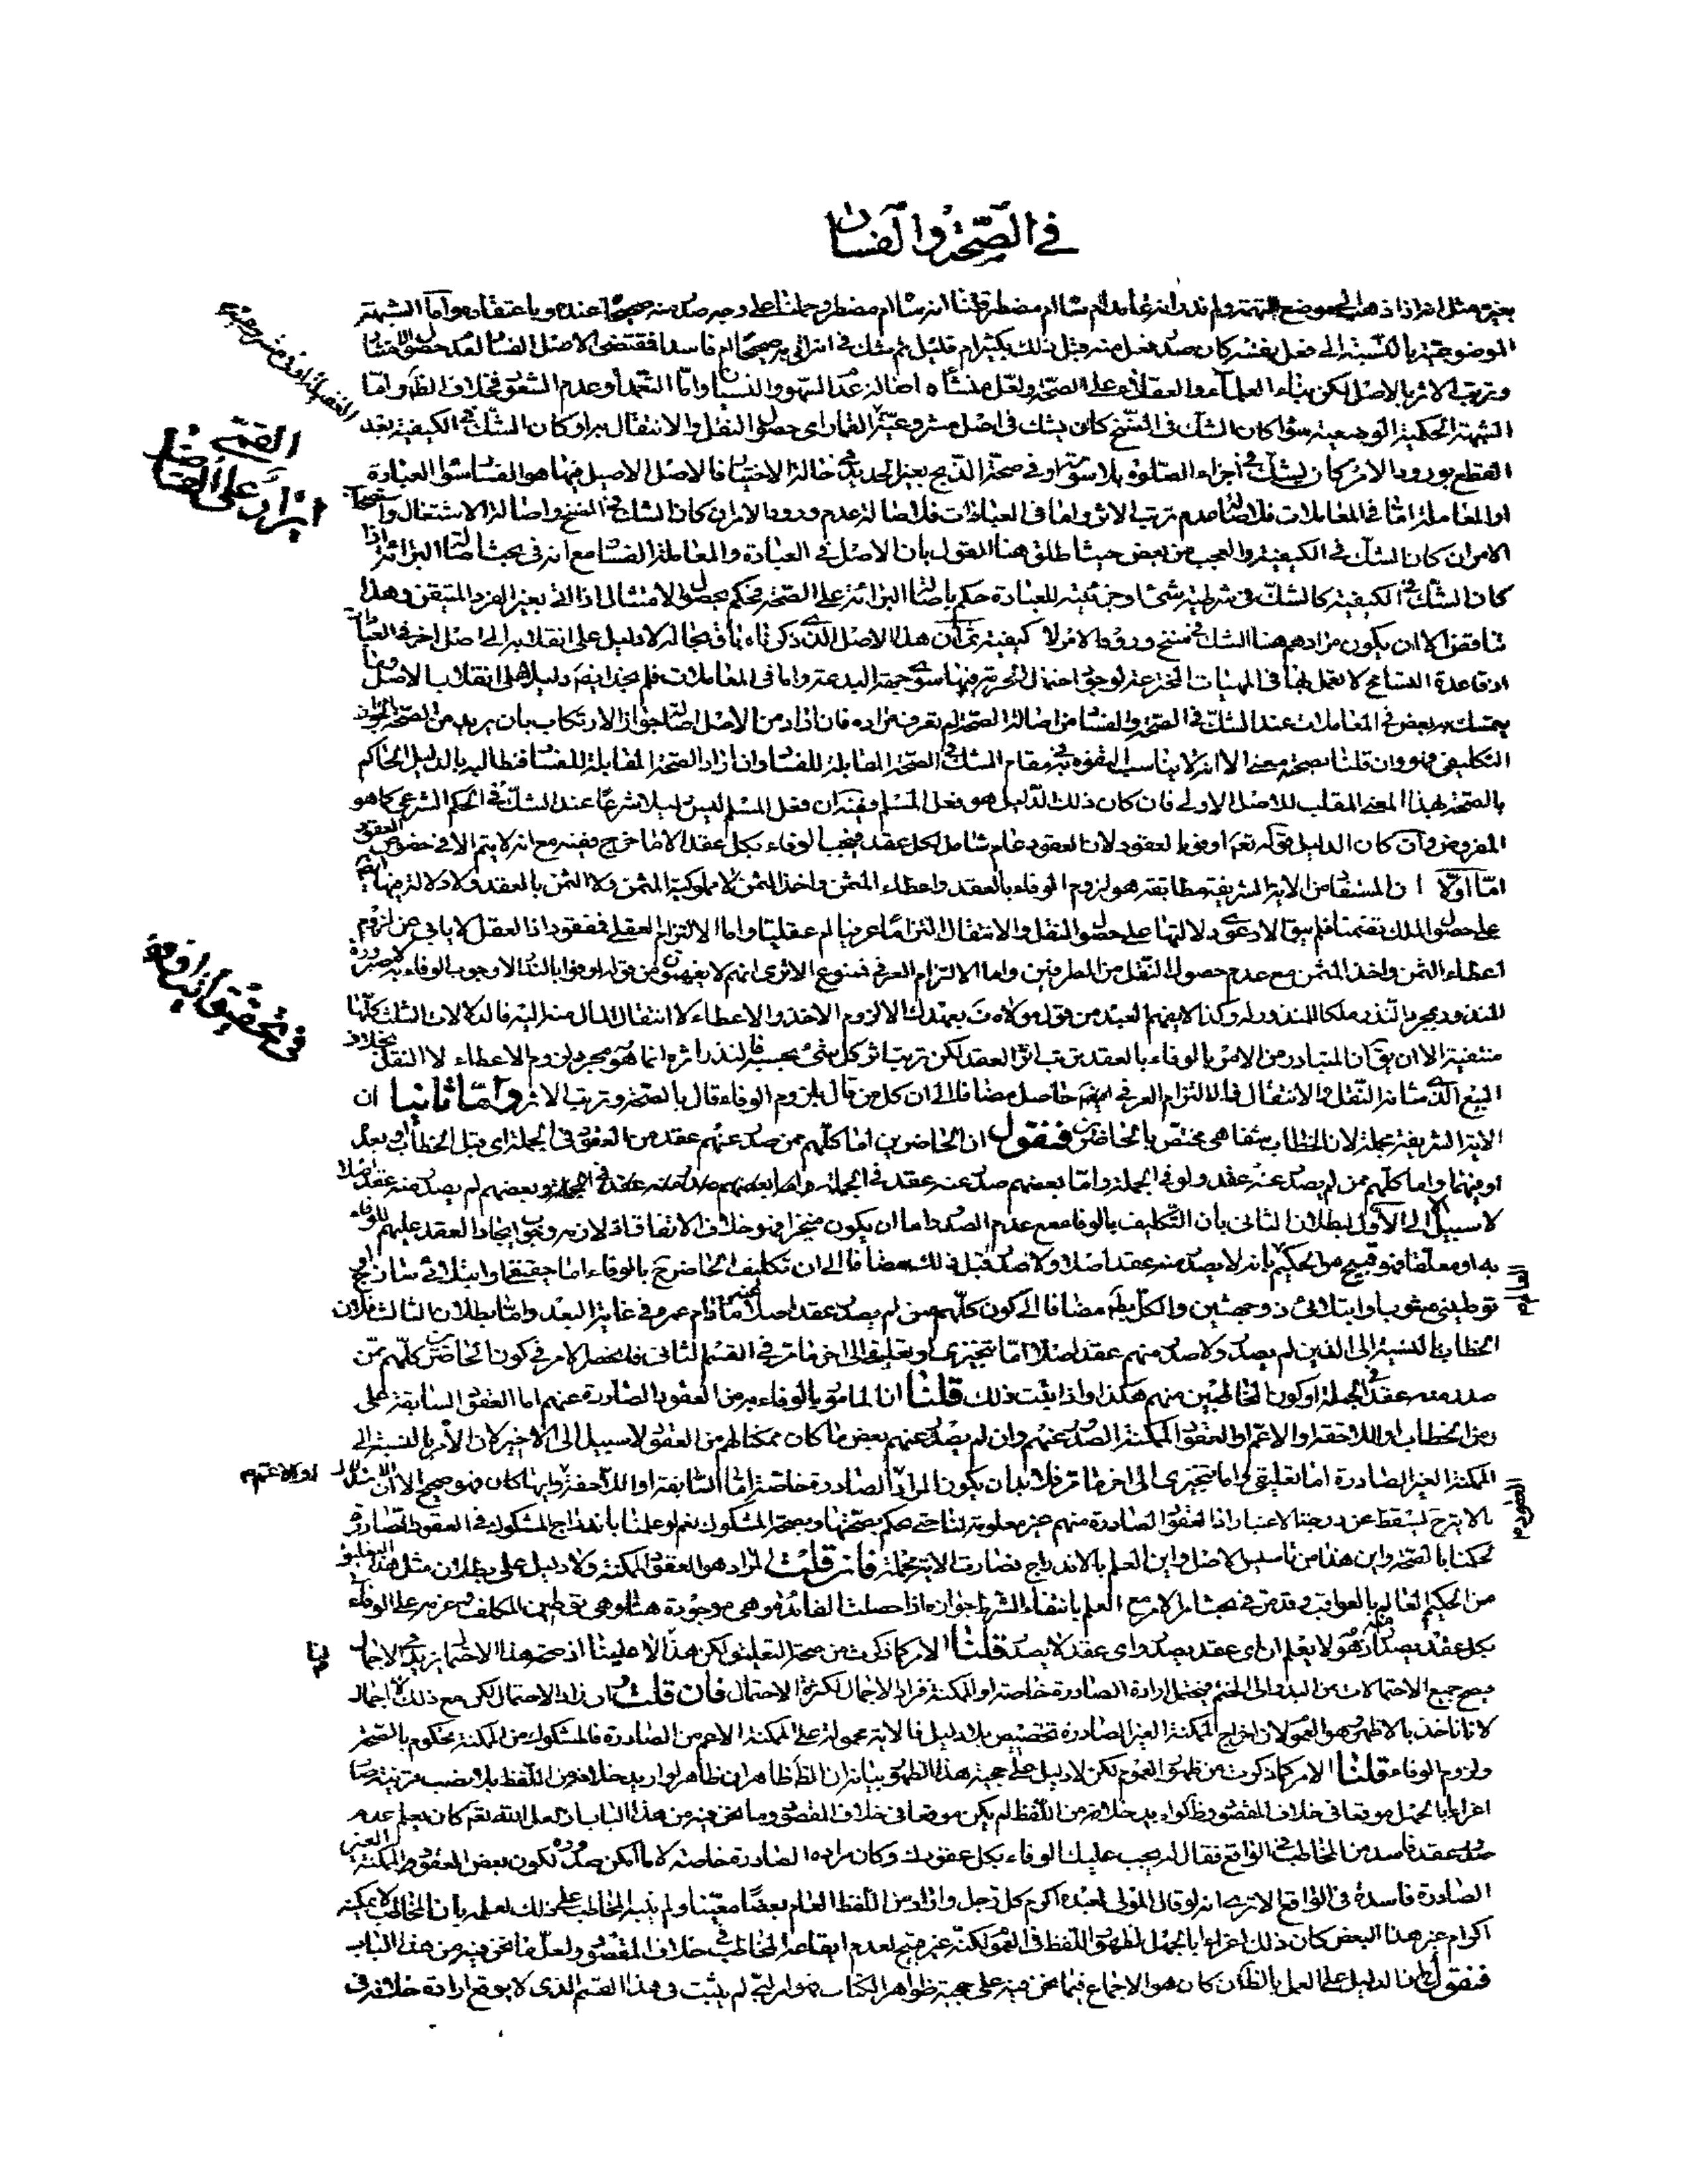 في الصحة والفساد
الموضوعية بالنسبة الى فعل نفسه كان صدر فعل منه قبل ذلك بكثير ام قليل ثم شك في انه اتى به صحيحا ام فاسدا فمقتضى الاصل الفساد لعدم حصول الامتثال
وترتب الاثر بالاصل لكن بناء العلماء والعقلاء على الصحة ولعل منشأه اصالة عدم السهو والنسيان واما التعمد او عدم الشعور فخلاف الظاهر واما
الشبهة الحكمية الوضعية سواء كان الشك في النسخ كان يشك في اصل مشروعية القمار اى حصول النقل والانتقال به او كان الشك في الكيفية بعد
القطع بورود الامر كان يشك في اجزاء الصلوة بلا سورة او في صحة الذبح بغير الحديد في حالة الاختيار فالاصل الاصيل فيها هو الفساد سواء العبادة
او المعاملة اما في المعاملات فلاصالة عدم ترتب الاثر واما في العبادات فلاصالة عدم ورود الامر ان كان الشك في النسخ واصالة الاشتغال
الامر ان كان الشك في الكيفية والعجب من بعض حيث اطلق هنا القول بان الاصل في العبادة والمعاملة الفساد مع انه في بحث اصالة البرائة اذا
كان الشك في الكيفية كالشك في شرطية شىء او جزئيته للعبادة حكم باصالة البرائة على الصحة فحكم بحصول الامتثال اذا اتى بغير الفرد المتيقن وهذا
تناقض الا ان يكون مراده هنا الشك في نسخ ورود الامر لا كيفيته ثم ان هذا الاصل الذي ذكرناه باق بحاله لا دليل على انقلابه الى اصل اخر في العبادات
اذ قاعدة التسامح لا تعمل بها في المهيات المخترعة لوجود احتمال الحرمة فيها سوى جهة البدعة واما في المعاملات فلم نجد ايضا دليلا على انقلاب الاصل
يتمسك بعض في المعاملات عند الشك في الصحة والفساد من اصالة الصحة لم نعرف مراده فان اراد من الاصل اصالة جواز الارتكاب بان يريد من الصحة الجواز
التكليفي فهو وان قلنا بصحته معنى الا انه لا يناسب التفوه به في مقام الشك في الصحة المقابلة للفساد وان اراد الصحة المقابلة للفساد فنطالبه بالدليل الحاكم
بالصحة بهذا المعنى المقلب للاصل الاولى فان كان ذلك الدليل هو فعل المسلم ففيه ان فعل المسلم ليس دليلا شرعا عند الشك في الحكم الشرعي كما هو
المفروض وان كان الدليل قوله تعالى اوفوا بالعقود لان العقود عام شامل لكل عقد فيجب الوفاء بكل عقد الا ما خرج ففيه مع انه لا يتم الا في خصوص العقود
اما اولا ان المستفاد من الاية الشريفة مطابقة هو لزوم الوفاء بالعقد واعطاء المثمن واخذ الثمن لا مملوكية المثمن ولا الثمن بالعقد ولا دلالة فيها ايضا
على حصول الملك تضمنا فلم يبق الا دعوى دلالتها على حصول النقل والانتقال التزاما عرفيا ام عقليا واما الالتزام العقلى فمفقود اذ العقل لا يابى عن لزوم
اعطاء الثمن واخذ المثمن مع عدم حصول النقل من الطرفين واما الالتزام العرفى فممنوع الا ترى انهم لا يفهمون من قوله اوفوا بالنذر الا وجوب الوفاء به لا صيرورة
المنذور بمجرد النذر ملكا للمنذور له وكذا لا يفهم العبد من قول مولاه ف بعهدك الا لزوم الاخذ والاعطاء لا انتقال المال منه اليه فالدلالات الثلث كلها
منتفية الا ان يق ان المتبادر من الامر بالوفاء بالعقد ترتب اثر العقد لكن ترتب اثر كل شىء بحسبه فالنذر اثره انما هو مجرد لزوم الاعطاء لا النقل بخلاف
البيع الذي شانه النقل والانتقال فالالتزام العرفى حاصل مضافا الى ان كل من قال بلزوم الوفاء قال بالصحة وترتب الاثر واما ثانيا ان
الاية الشريفة مجملة لان الخطاب شفاهى مختص بالحاضرين فنقول ان الحاضرين اما كلهم ممن صدر عنهم عقد من العقود في الجملة اى قبل الخطاب او بعده
او فيهما واما كلهم ممن لم يصدر عنه عقد ولو في الجملة واما بعضهم صدر عنه عقد في الجملة وبعضهم لم يصدر منه عقد اصلا
لا سبيل الى الاول لبطلان الثانى بان التكليف بالوفاء مع عدم الصدور اما ان يكون منجزا فهو خلاف الاتفاق اذ لازمه وجوب ايجاد العقد عليهم للوفاء
به او معلقا فهو قبيح من الحكيم العالم بانه لا يصدر منه عقد اصلا ولا صدر قبل ذلك مضافا الى ان تكليف الحاضرين ح بالوفاء اما حقيقى او ابتلائى ساذج او
توطينى مثوب او ابتلائى ذو جهتين والكل بط مضافا الى كون كلهم ممن لم يصدر عنه عقد اصلا ما دام عمره في غاية البعد واما بطلان الثالث فلان
الخطاب بالنسبة الى الذين لم يصدر ولا صدر منهم عقد اصلا اما تنجيزى او تعليقى الى اخر ما مر في القسم الثانى فانحصر الامر في كون الحاضرين كلهم ممن
صدر منه عقد في الجملة او كون المخاطبين منهم هكذا واذا ثبت ذلك قلنا ان المامور بالوفاء به من العقود الصادرة عنهم اما العقود السابقة على
زمن الخطاب او اللاحقة او الاعم او العقود الممكنة الصدور عنهم وان لم يصدر عنهم بعض ما كان ممكنا لهم من العقود لا سبيل الى الاخير لان الامر بالنسبة الى
الممكنة الغير الصادرة اما تعليقى او اما تنجيزى الى اخر ما مر فلا بد ان يكون المراد الصادرة خاصة اما السابقة او اللاحقة او الاعم وايها كان فهو صحيح الا ان الاستدلال
بالاية ح يسقط عن درجة الاعتبار اذ العقود الصادرة منهم غير معلومة لنا حتى نحكم بصحتها وبصحة المشكوك نعم لو علمنا باندراج المشكوك في العقود الصادرة
لحكمنا بالصحة واين هذا من تاسيس الاصل واين العلم بالاندراج فصارت الاية مجملة فان قلت المراد هو العقود الممكنة ولا دليل على بطلان مثل هذا التعليق
من الحكيم العالم بالعواقب وقد مر في مبحث امر الامر مع العلم بانتفاء الشرط جوازه اذا حصلت الفائدة وهى موجودة هنا وهى توطين المكلف وعزمه على الوفاء
بكل عقد يصدر منه اذ هو لا يعلم ان اى عقد يصدر واى عقد لا يصدر قلنا الامر كما ذكرت من صحة التعليق لكن هذا لا علينا اذ صحة هذا الاحتمال يزيد في الاجمال
فيصح جميع الاحتمالات من البدو الى الختم فيحتمل ارادة الصادرة خاصة او الممكنة فزاد الاجمال لكثرة الاحتمال فان قلت زاد الاحتمال لكن مع ذلك لا اجمال
لانا ناخذ بالاظهر وهو العموم لان اخراج الممكنة الغير الصادرة تخصيص بلا دليل فالاية محمولة على الممكنة الاعم من الصادرة فالمشكوك من الممكنة محكوم بالصحة
ولزوم الوفاء قلنا الامر كما ذكرت من ظهور العموم لكن لا دليل على حجية هذا الظهور بيانه ان الظاهر ظاهران ظاهر لو اريد خلافه من اللفظ بلا نصب قرينة صار
اغراء بالجهل موقعا في خلاف المقصود وظاهر لو اريد خلافه من اللفظ لم يكن موقعا في خلاف المقصود وما نحن فيه من هذا الباب اذ لعل الله تعالى كان يعلم عدم
صدور عقد فاسد من المخاطب في الواقع فقال له يجب عليك الوفاء بكل عقودك وكان مراده الصادرة خاصة لا ما امكن صدوره لكون بعض العقود الممكنة الغير
الصادرة فاسدة في الواقع الا ترى انه لو قال المولى لعبده اكرم كل رجل واراد من اللفظ العام بعضا معينا ولم ينبه المخاطب على ذلك لعلمه بان المخاطب لا يمكنه
اكرام غير هذا البعض كان ذلك اغراء بالجهل لظهور اللفظ في العموم لكنه غير قبيح لعدم ايقاعه المخاطب في خلاف المقصود ولعل ما نحن فيه من هذا الباب
فنقول ان الدليل على العمل بالظن ان كان هو الاجماع فيما نحن فيه على حجية ظواهر الكتاب لم يثبت في هذا القسم الذى لا يوقع ارادة خلافه في
ايراد على الفاضل القمى
في تحقيق اية اوفوا